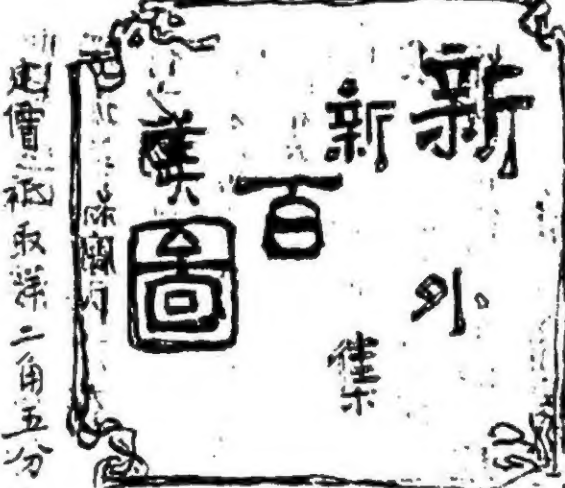 新新百美圖
外集
定價祗取洋二角五分